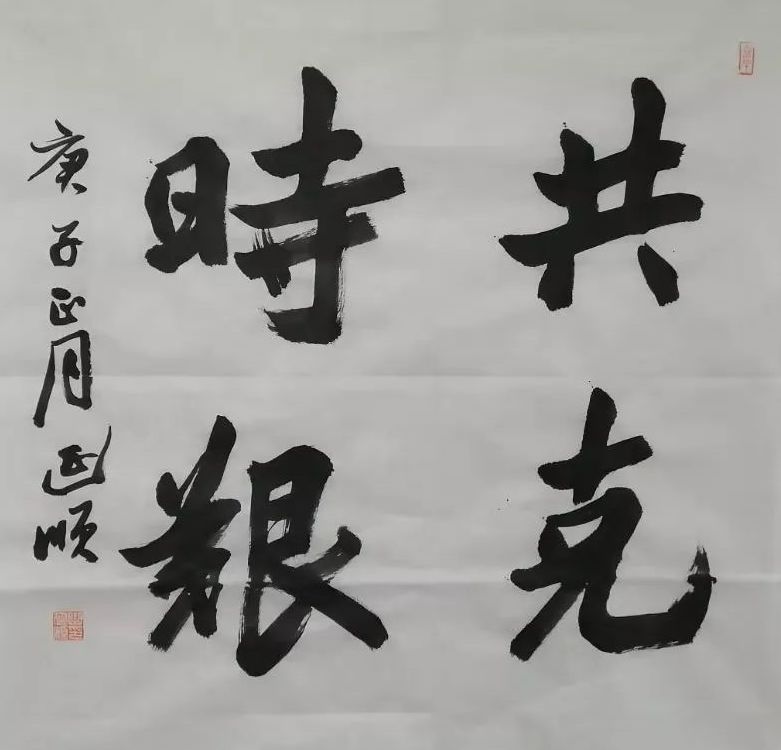 共克
時艱
庚子正月延顺